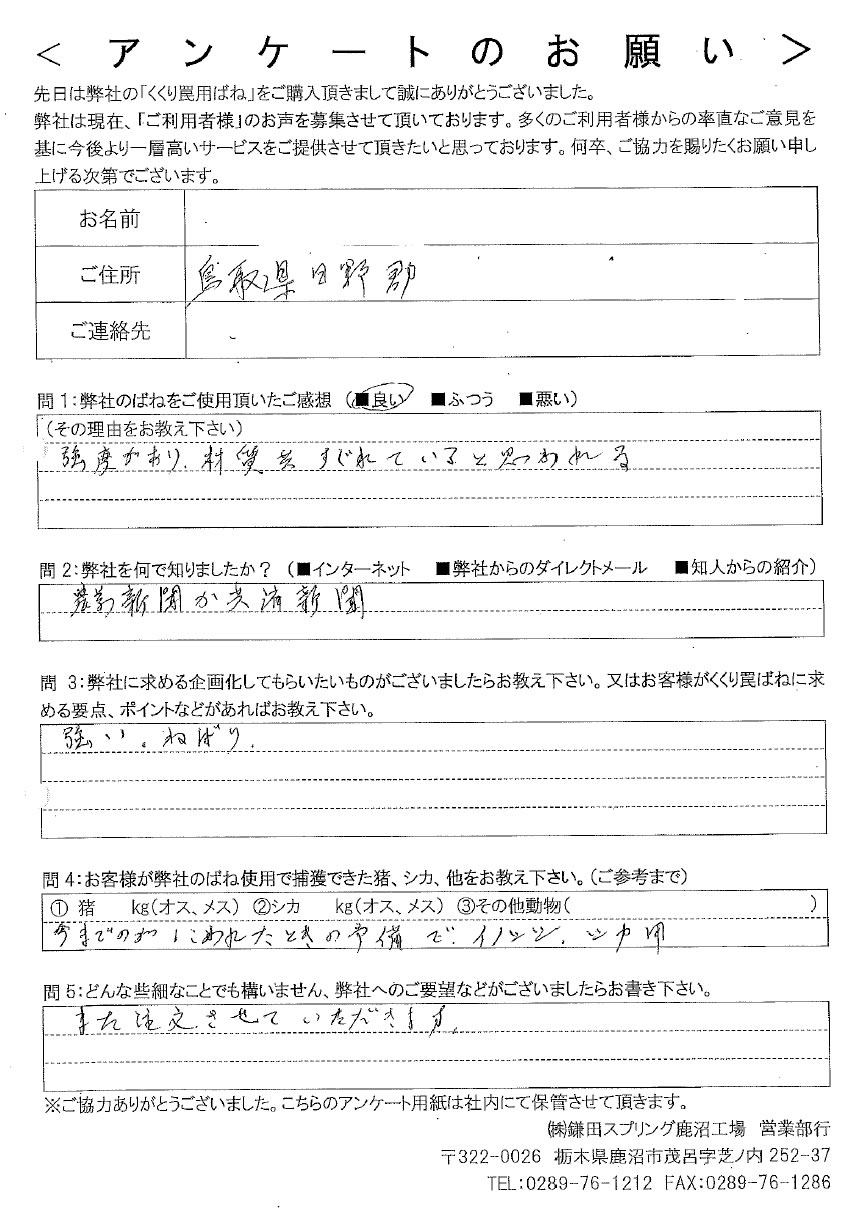 ＜アンケートのお願い＞
先日は弊社の「くくり罠用ばね」をご購入頂きまして誠にありがとうございました。
弊社は現在、「ご利用者様」のお声を募集させて頂いております。多くのご利用者様からの率直なご意見を
基に今後より一層高いサービスをご提供させて頂きたいと思っております。何卒、ご協力を賜りたくお願い申し
上げる次第でございます。
お名前
ご住所 鳥取県日野郡
ご連絡先
問1:弊社のばねをご使用頂いたご感想（■良い ■ふつう ■悪い）
（その理由をお教え下さい）
強度があり、材質共すぐれていると思われる
問2:弊社を何で知りましたか？（■インターネット ■弊社からのダイレクトメール ■知人からの紹介）
新聞か共済新聞
問 3:弊社に求める企画化してもらいたいものがございましたらお教え下さい。又はお客様がくくり罠ばねに求
める要点、ポイントなどがあればお教え下さい。
強い。ねばり.
問4:お客様が弊社のばね使用で捕獲できた猪、シカ、他をお教え下さい。（ご参考まで）
① 猪 kg（オス、メス） ②シカ kg（オス、メス） ③その他動物（ ）
今までのがこわれたときの予備で、イノシシ、シカ用
問5:どんな些細なことでも構いません、弊社へのご要望などがございましたらお書き下さい。
また注文させていただきます。
※ご協力ありがとうございました。こちらのアンケート用紙は社内にて保管させて頂きます。
㈱鎌田スプリング鹿沼工場 営業部行
〒322-0026 栃木県鹿沼市茂呂字芝ノ内 252-37
TEL:0289-76-1212 FAX:0289-76-1286